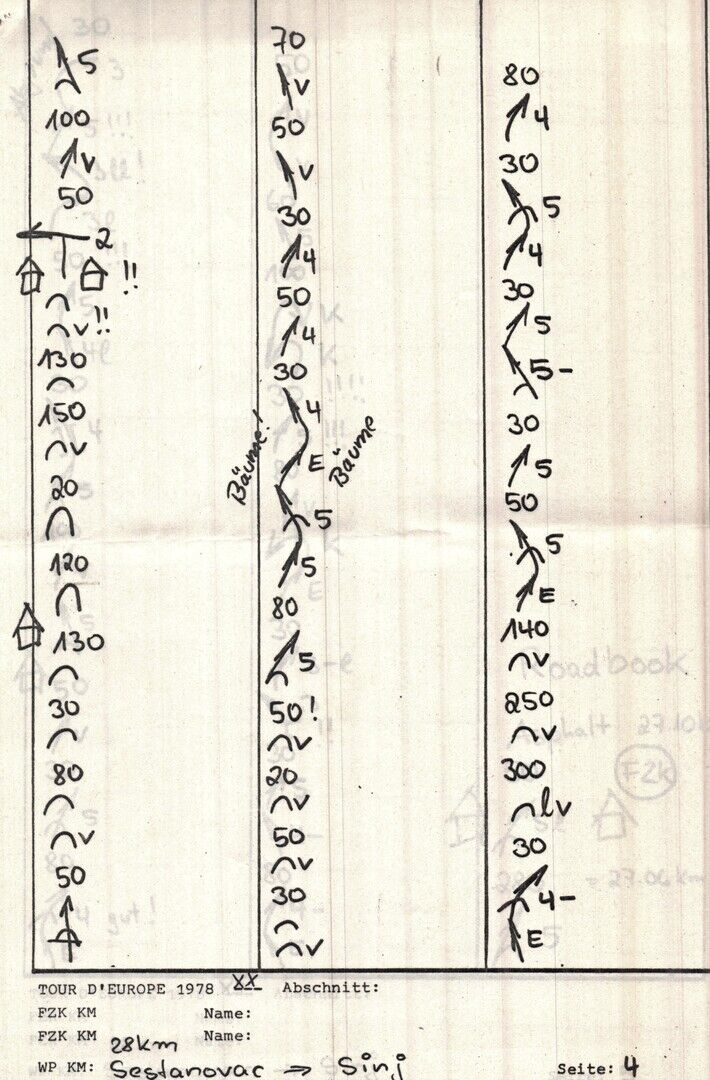 5
100
v
50
2
!!
v!!
130
150
v
20
120
130
30
80
v
50
70
v
50
v
30
4
50
4
30
4
Bäume! E Bäume
5
5
80
5
50!
v
20
v
50
v
30
v
80
4
30
5
4
30
5
5-
30
5
50
5
E
140
v
250
v
300
lv
30
4-
E
Roadbook
Asphalt
FZK
TOUR D'EUROPE 1978 XX Abschnitt:
FZK KM Name:
FZK KM Name:
28km
WP KM: Sestanovac → Sinj Seite: 4